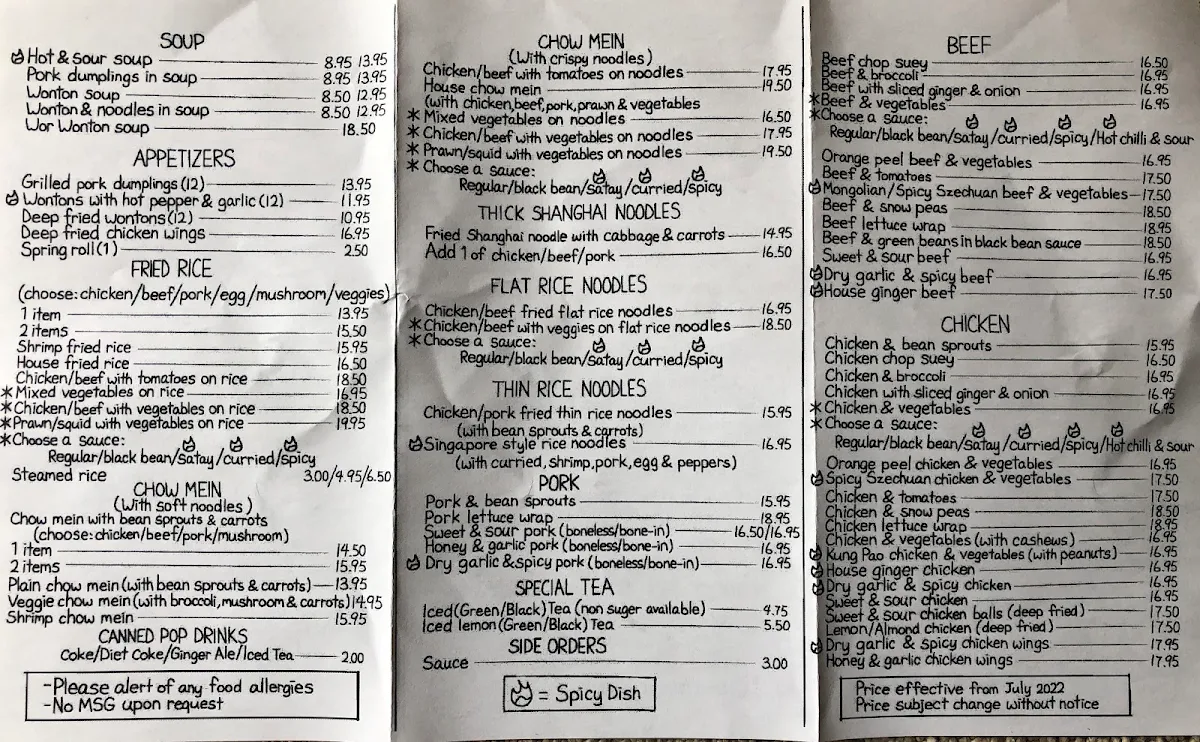 SOUP
Hot & sour soup 8.95 13.95
Pork dumplings in soup 8.95 13.95
Wonton soup 8.50 12.95
Wonton & noodles in soup 8.50 12.95
Wor Wonton soup 18.50
APPETIZERS
Grilled pork dumplings (12) 13.95
Wontons with hot pepper & garlic (12) 11.95
Deep fried wontons (12) 10.95
Deep fried chicken wings 16.95
Spring roll (1) 2.50
FRIED RICE
(choose: chicken/beef/pork/egg/mushroom/veggies)
1 item 13.95
2 items 15.50
Shrimp fried rice 15.95
House fried rice 16.50
Chicken/beef with tomatoes on rice 18.50
*Mixed vegetables on rice 16.95
*Chicken/beef with vegetables on rice 18.50
*Prawn/squid with vegetables on rice 19.95
*Choose a sauce:
Regular/black bean/satay/curried/spicy
Steamed rice 3.00/4.95/6.50
CHOW MEIN
(With soft noodles)
Chow mein with bean sprouts & carrots
(choose: chicken/beef/pork/mushroom)
1 item 14.50
2 items 15.95
Plain chow mein (with bean sprouts & carrots) 13.95
Veggie chow mein (with broccoli, mushroom & carrots) 14.95
Shrimp chow mein 15.95
CANNED POP DRINKS
Coke/Diet Coke/Ginger Ale/Iced Tea 2.00
-Please alert of any food allergies
-No MSG upon request
CHOW MEIN
(With crispy noodles)
Chicken/beef with tomatoes on noodles 17.95
House chow mein 19.50
(with chicken, beef, pork, prawn & vegetables
*Mixed vegetables on noodles 16.50
*Chicken/beef with vegetables on noodles 17.95
*Prawn/squid with vegetables on noodles 19.50
*Choose a sauce:
Regular/black bean/satay/curried/spicy
THICK SHANGHAI NOODLES
Fried Shanghai noodle with cabbage & carrots 14.95
Add 1 of chicken/beef/pork 16.50
FLAT RICE NOODLES
Chicken/beef fried flat rice noodles 16.95
*Chicken/beef with veggies on flat rice noodles 18.50
*Choose a sauce:
Regular/black bean/satay/curried/spicy
THIN RICE NOODLES
Chicken/pork fried thin rice noodles 15.95
(with bean sprouts & carrots)
Singapore style rice noodles 16.95
(with curried, shrimp, pork, egg & peppers)
PORK
Pork & bean sprouts 15.95
Pork lettuce wrap 18.95
Sweet & sour pork (boneless/bone-in) 16.50/16.95
Honey & garlic pork (boneless/bone-in) 16.95
Dry garlic & spicy pork (boneless/bone-in) 16.95
SPECIAL TEA
Iced (Green/Black) Tea (non suger available) 4.75
Iced lemon (Green/Black) Tea 5.50
SIDE ORDERS
Sauce 3.00
= Spicy Dish
BEEF
Beef chop suey 16.50
Beef & broccoli 16.95
Beef with sliced ginger & onion 16.95
*Beef & vegetables 16.95
*Choose a sauce:
Regular/black bean/satay/curried/spicy/Hot chilli & sour
Orange peel beef & vegetables 16.95
Beef & tomatoes 17.50
Mongolian/Spicy Szechuan beef & vegetables 17.50
Beef & snow peas 18.50
Beef lettuce wrap 18.95
Beef & green beans in black bean sauce 18.50
Sweet & sour beef 16.95
Dry garlic & spicy beef 16.95
House ginger beef 17.50
CHICKEN
Chicken & bean sprouts 15.95
Chicken chop suey 16.50
Chicken & broccoli 16.95
Chicken with sliced ginger & onion 16.95
*Chicken & vegetables 16.95
*Choose a sauce:
Regular/black bean/satay/curried/spicy/Hot chilli & sour
Orange peel chicken & vegetables 16.95
Spicy Szechuan chicken & vegetables 17.50
Chicken & tomatoes 17.50
Chicken & snow peas 18.50
Chicken lettuce wrap 18.95
Chicken & vegetables (with cashews) 16.95
Kung Pao chicken & vegetables (with peanuts) 16.95
House ginger chicken 16.95
Dry garlic & spicy chicken 16.95
Sweet & sour chicken 16.95
Sweet & sour chicken balls (deep fried) 17.50
Lemon/Almond chicken (deep fried) 17.50
Dry garlic & spicy chicken wings 17.95
Honey & garlic chicken wings 17.95
Price effective from July 2022
Price subject change without notice